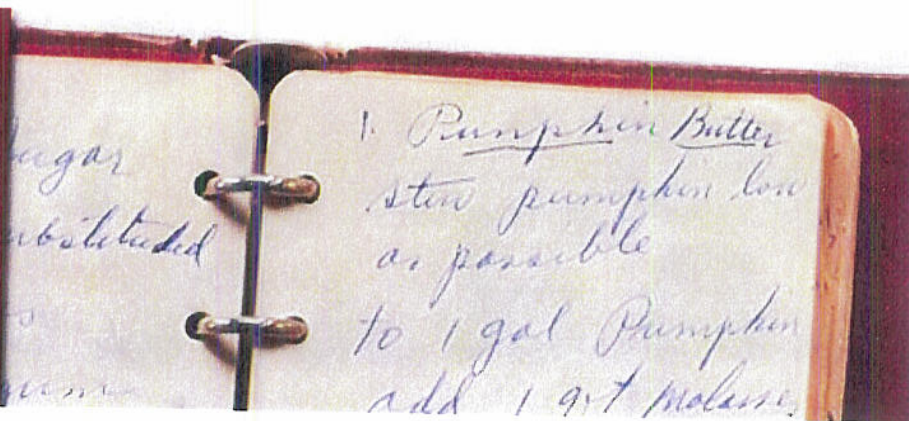 ugar
ubstituded
s
1. Pumphin Butter
stew pumphin low
as possible
to 1 gal Pumphin
add 1 qrt molasses